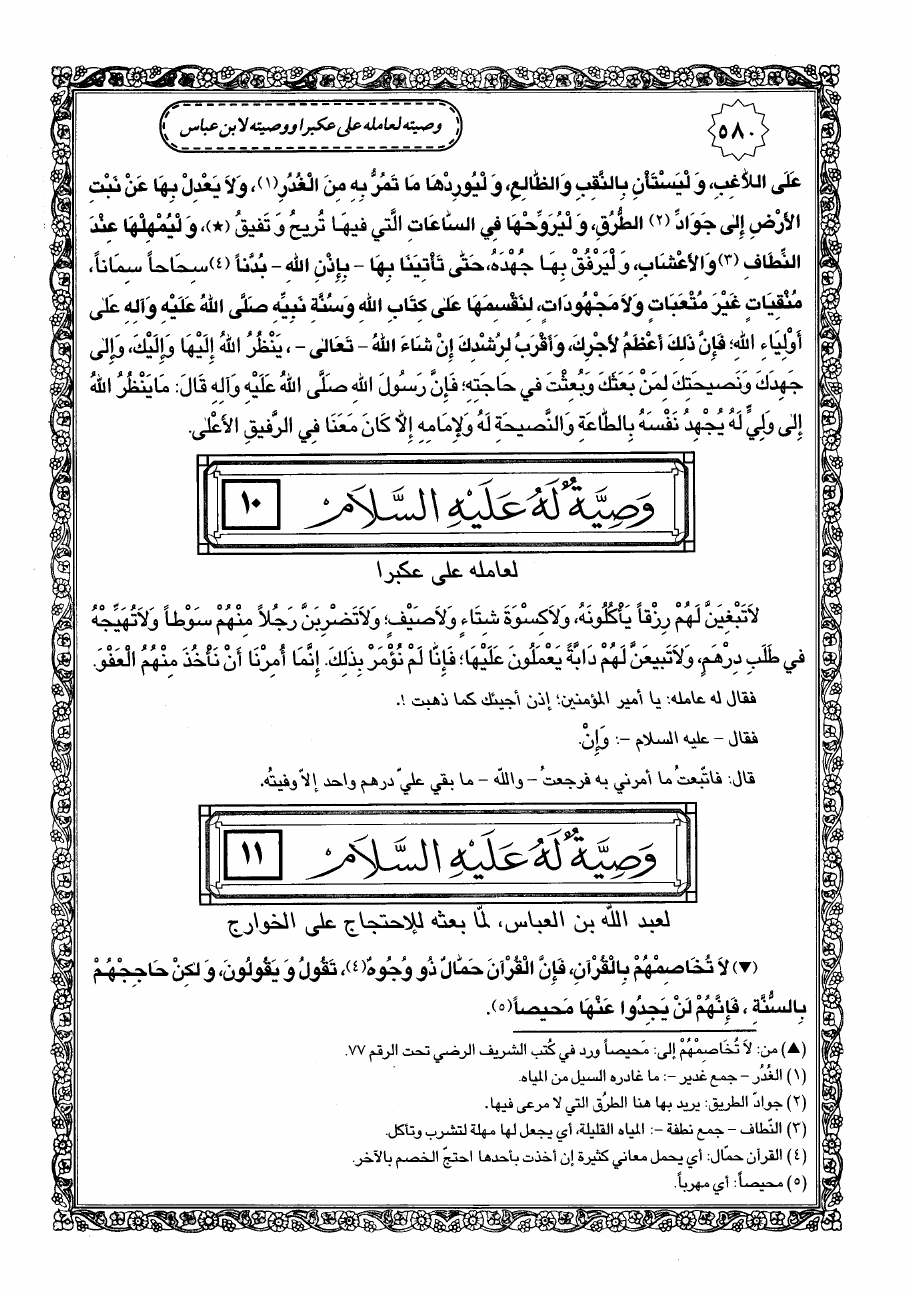 ٥٨٠
وصيته لعامله على عكبرا ووصيته لابن عباس
عَلَى اللاَّغِبِ، وَ لْيَسْتَأْنِ بِالنَّقِبِ وَالظَّالِعِ، وَ لْيُورِدْهَا مَا تَمُرُّ بِهِ مِنَ الْغُدُرِ(١)، وَلاَ يَعْدِلْ بِهَا عَنْ نَبْتِ
الأَرْضِ إِلىٰ جَوَادِّ (٢) الطُّرُقِ، وَ لْيُرَوِّحْهَا فِي السَّاعَاتِ الَّتي فيهَا تُريحُ وَ تَفيقُ (★)، وَ لْيُمْهِلْهَا عِنْدَ
النِّطَافِ (٣) وَالأَعْشَابِ، وَ لْيَرْفُقْ بِهَا جُهْدَهُ، حَتّىٰ تَأْتِيَنَا بِهَا – بِإِذْنِ اللهِ – بُدُناً (٤) سِحَاحاً سِمَاناً،
مُنْقِيَاتٍ غَيْرَ مُتْعَبَاتٍ وَلاَ مَجْهُودَاتٍ، لِنَقْسِمَهَا عَلىٰ كِتَابِ اللهِ وَسُنَّةِ نَبِيِّهِ صَلَّى اللهُ عَلَيْهِ وَآلِهِ عَلىٰ
أَوْلِيَاءِ اللهِ؛ فَإِنَّ ذَلِكَ أَعْظَمُ لأَجْرِكَ، وَأَقْرَبُ لِرُشْدِكَ إِنْ شَاءَ اللهُ – تَعَالىٰ –، يَنْظُرُ اللهُ إِلَيْهَا وَإِلَيْكَ، وَإِلىٰ
جَهْدِكَ وَنَصيحَتِكَ لِمَنْ بَعَثَكَ وَبُعِثْتَ في حَاجَتِهِ؛ فَإِنَّ رَسُولَ اللهِ صَلَّى اللهُ عَلَيْهِ وَآلِهِ قَالَ: مَا يَنْظُرُ اللهُ
إِلىٰ وَلِيٍّ لَهُ يُجْهِدُ نَفْسَهُ بِالطَّاعَةِ وَالنَّصيحَةِ لَهُ وَلإِمَامِهِ إِلاَّ كَانَ مَعَنَا فِي الرَّفيقِ الأَعْلىٰ.
وَصِيَّةٌ لَهُ عَلَيْهِ السَّلاَمُ ١٠
لعامله على عكبرا
لاَ تَبْغِيَنَّ لَهُمْ رِزْقاً يَأْكُلُونَهُ، وَلاَ كِسْوَةَ شِتَاءٍ وَلاَ صَيْفٍ؛ وَلاَ تَضْرِبَنَّ رَجُلاً مِنْهُمْ سَوْطاً وَلاَ تُهَيِّجْهُ
في طَلَبِ دِرْهَمٍ، وَلاَ تَبيعَنَّ لَهُمْ دَابَّةً يَعْمَلُونَ عَلَيْهَا؛ فَإِنَّا لَمْ نُؤْمَرْ بِذَلِكَ. إِنَّمَا أُمِرْنَا أَنْ نَأْخُذَ مِنْهُمُ الْعَفْوَ.
فقال له عامله: يا أمير المؤمنين؛ إذن أجيئك كما ذهبت !.
فقال – عليه السلام –: وَإِنْ.
قال: فاتّبعتُ ما أمرني به فرجعتُ – واللّه – ما بقي عليّ درهم واحد إلاّ وفيتُه.
وَصِيَّةٌ لَهُ عَلَيْهِ السَّلاَمُ ١١
لعبد اللّه بن العباس، لمّا بعثه للإحتجاج على الخوارج
(▼) لاَ تُخَاصِمْهُمْ بِالْقُرْآنِ، فَإِنَّ الْقُرْآنَ حَمَّالٌ ذُو وُجُوهٍ(٤)، تَقُولُ وَ يَقُولُونَ، وَ لكِنْ حَاجِجْهُمْ
بِالسُّنَّةِ، فَإِنَّهُمْ لَنْ يَجِدُوا عَنْهَا مَحيصاً(٥).
(▲) من: لاَ تُخَاصِمْهُمْ إلى: مَحيصاً ورد في كُتب الشريف الرضي تحت الرقم ٧٧.
(١) الغُدُر – جمع غدير –: ما غادره السيل من المياه.
(٢) جوادّ الطريق: يريد بها هنا الطرُق التي لا مرعى فيها.
(٣) النّطاف – جمع نطفة –: المياه القليلة، أي يجعل لها مهلة لتشرب وتأكل.
(٤) القرآن حمّال: أي يحمل معاني كثيرة إن أخذت بأحدها احتجّ الخصم بالآخر.
(٥) محيصاً: أي مهرباً.